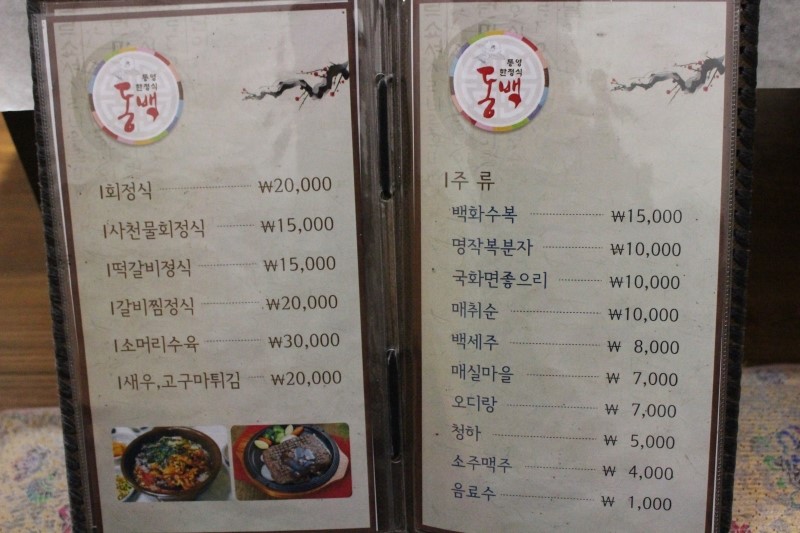 통영
한정식
동백
회정식 ₩20,000
사천물회정식 ₩15,000
떡갈비정식 ₩15,000
갈비찜정식 ₩20,000
소머리수육 ₩30,000
새우,고구마튀김 ₩20,000
통영
한정식
동백
주 류
백화수복 ₩15,000
명작복분자 ₩10,000
국화면좋으리 ₩10,000
매취순 ₩10,000
백세주 ₩ 8,000
매실마을 ₩ 7,000
오디랑 ₩ 7,000
청하 ₩ 5,000
소주맥주 ₩ 4,000
음료수 ₩ 1,000